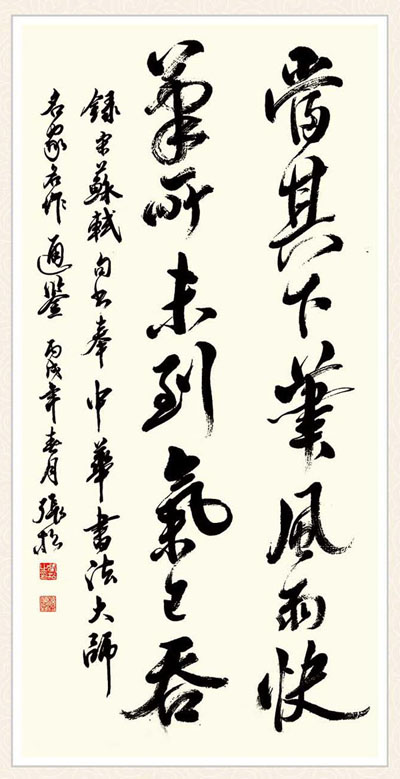 當其下筆風雨快
筆所未到氣已吞
錄宋蘇軾句書奉中華書法大師
名家名作通鑒 丙戌年春月 張松